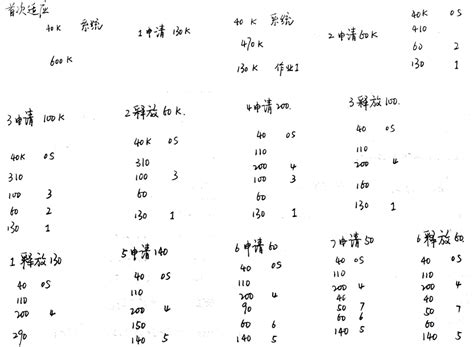 首次适应
40K 系统
600K
1申请130K
40K 系统
470K
130K 作业1
2申请60K
40K OS
410
60 2
130 1
3申请100K
40K OS
310
100 3
60 2
130 1
2释放60K
40K OS
310
100 3
60
130 1
4申请200.
40 OS
110
200 4
100 3
60
130 1
3释放100.
40 OS
110
200 4
160
130 1
1释放130
40 OS
110
200 4
290
5申请140
40 OS
110
200 4
150
140 5
6申请60
40 OS
110
200 4
90
60 6
140 5
7申请50
40 OS
110
200 4
40
50 7
60 6
140 5
6释放60
40 OS
110
200 4
40
50 7
60
140 5